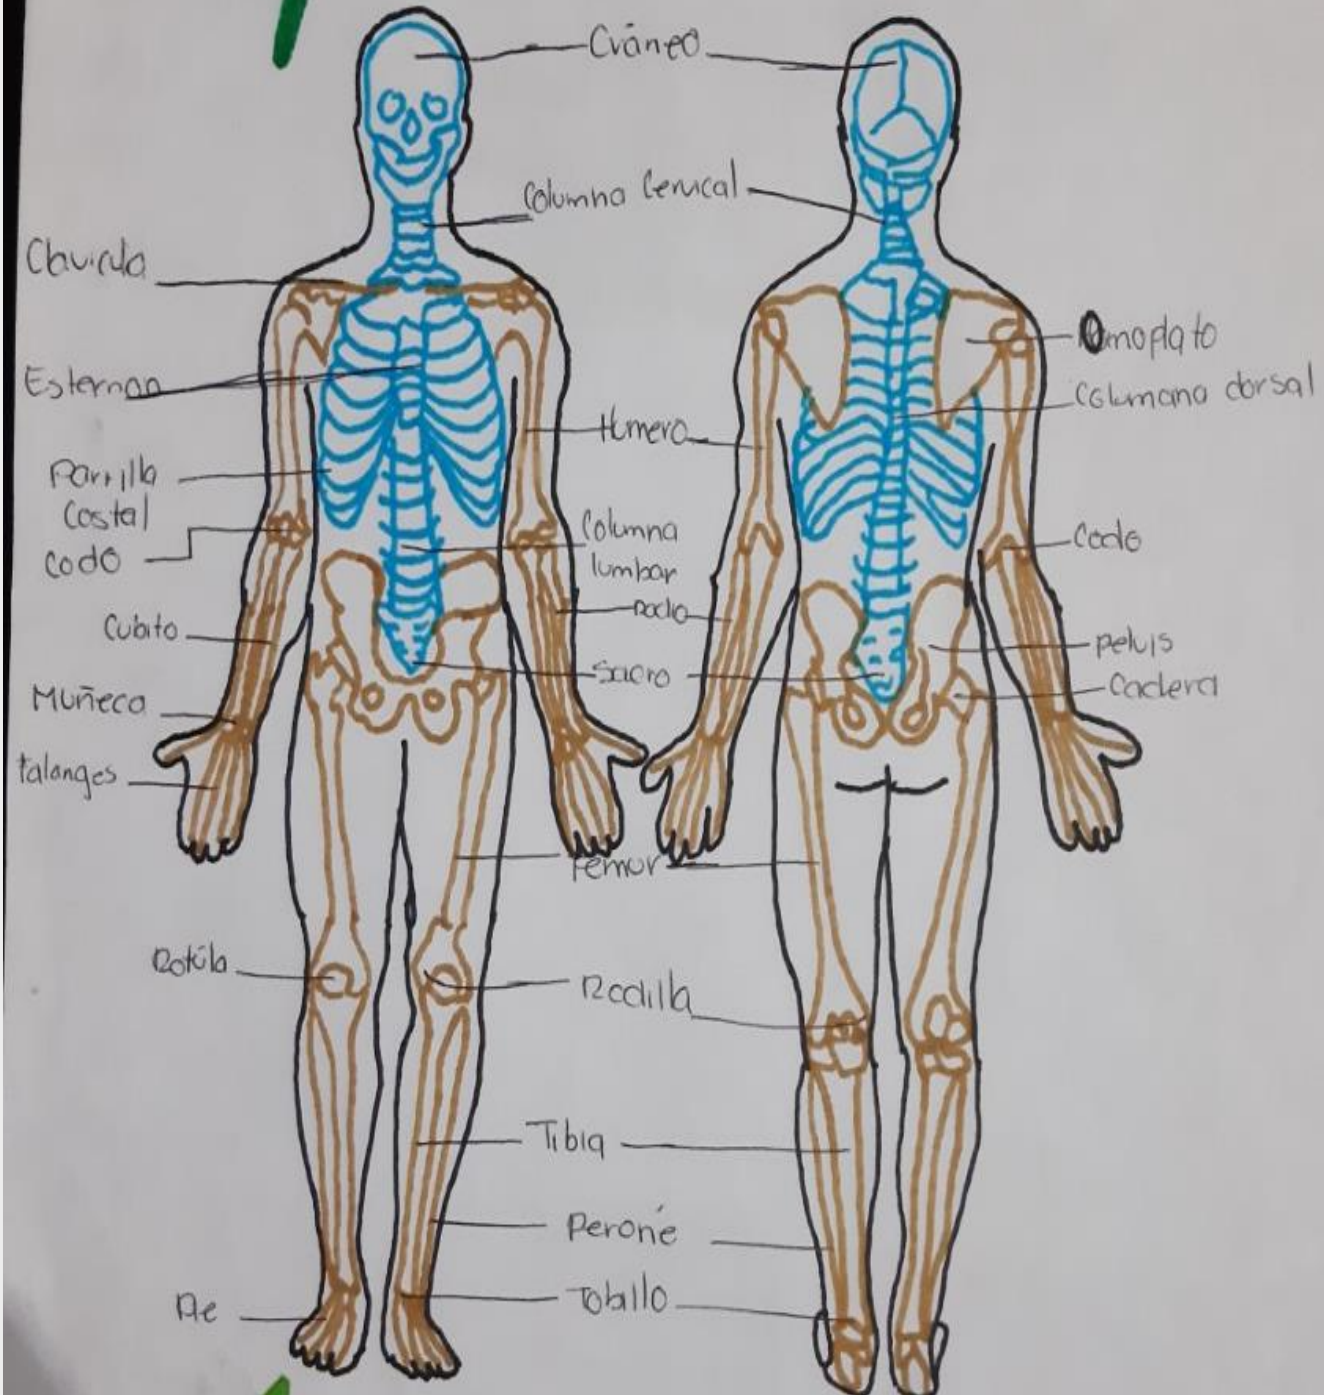 Cráneo
Columna Cervical
Clavicula
Omoplato
Esternon
Columana dorsal
Húmero
Parrilla
Costal
Columna
lumbar
Codo
Codo
Radio
Cubito
Pelvis
Sacro
Cadera
Muñeca
falanges
Femur
Rotúla
Rodilla
Tibia
Peroné
Tobillo
Pie